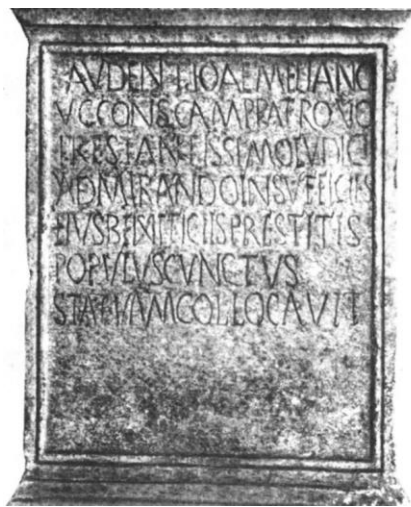 AVDENTIOAEMELIANO
VCCONSCAMPPATRONO
PRESTANTISSIMOIVDICI
ADMIRANDOINSVFFICIIS
EIVSBENIFICIISPRESTITIS
POPVLVSCVNCTVS
STATVAMCOLLOCAVIT